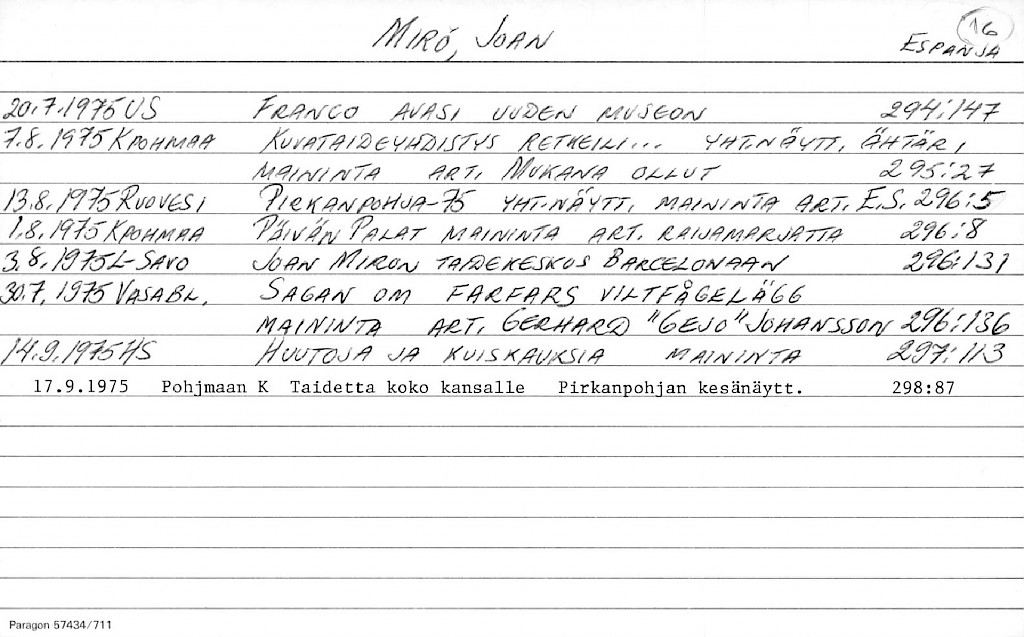 MIRÓ, JOAN
16
ESPANJA
20.7.1975 US FRANCO AVASI UUDEN MUSEON 294:147
7.8.1975 KPOHMAA KUVATAIDEYHDISTYS RETKEILI... YHT.NÄYTT. ÄHTÄRI
MAININTA ART. MUKANA OLLUT 295:27
13.8.1975 RUOVESI PIRKANPOHJA-75 YHT.NÄYTT. MAININTA ART. E.S. 296:5
1.8.1975 KPOHMAA PÄIVÄN PALAT MAININTA ART. RAIJAMARJATTA 296:8
3.8.1975 L-SAVO JOAN MIRON TAIDEKESKUS BARCELONAAN 296:131
30.7.1975 VASABL. SAGAN OM FARFARS VILTFÅGELÄGG
MAININTA ART. GERHARD "GEJO" JOHANSSON 296:136
14.9.1975 HS HUUTOJA JA KUISKAUKSIA MAININTA 297:113
17.9.1975 Pohjmaan K Taidetta koko kansalle Pirkanpohjan kesänäytt. 298:87
Paragon 57434/711